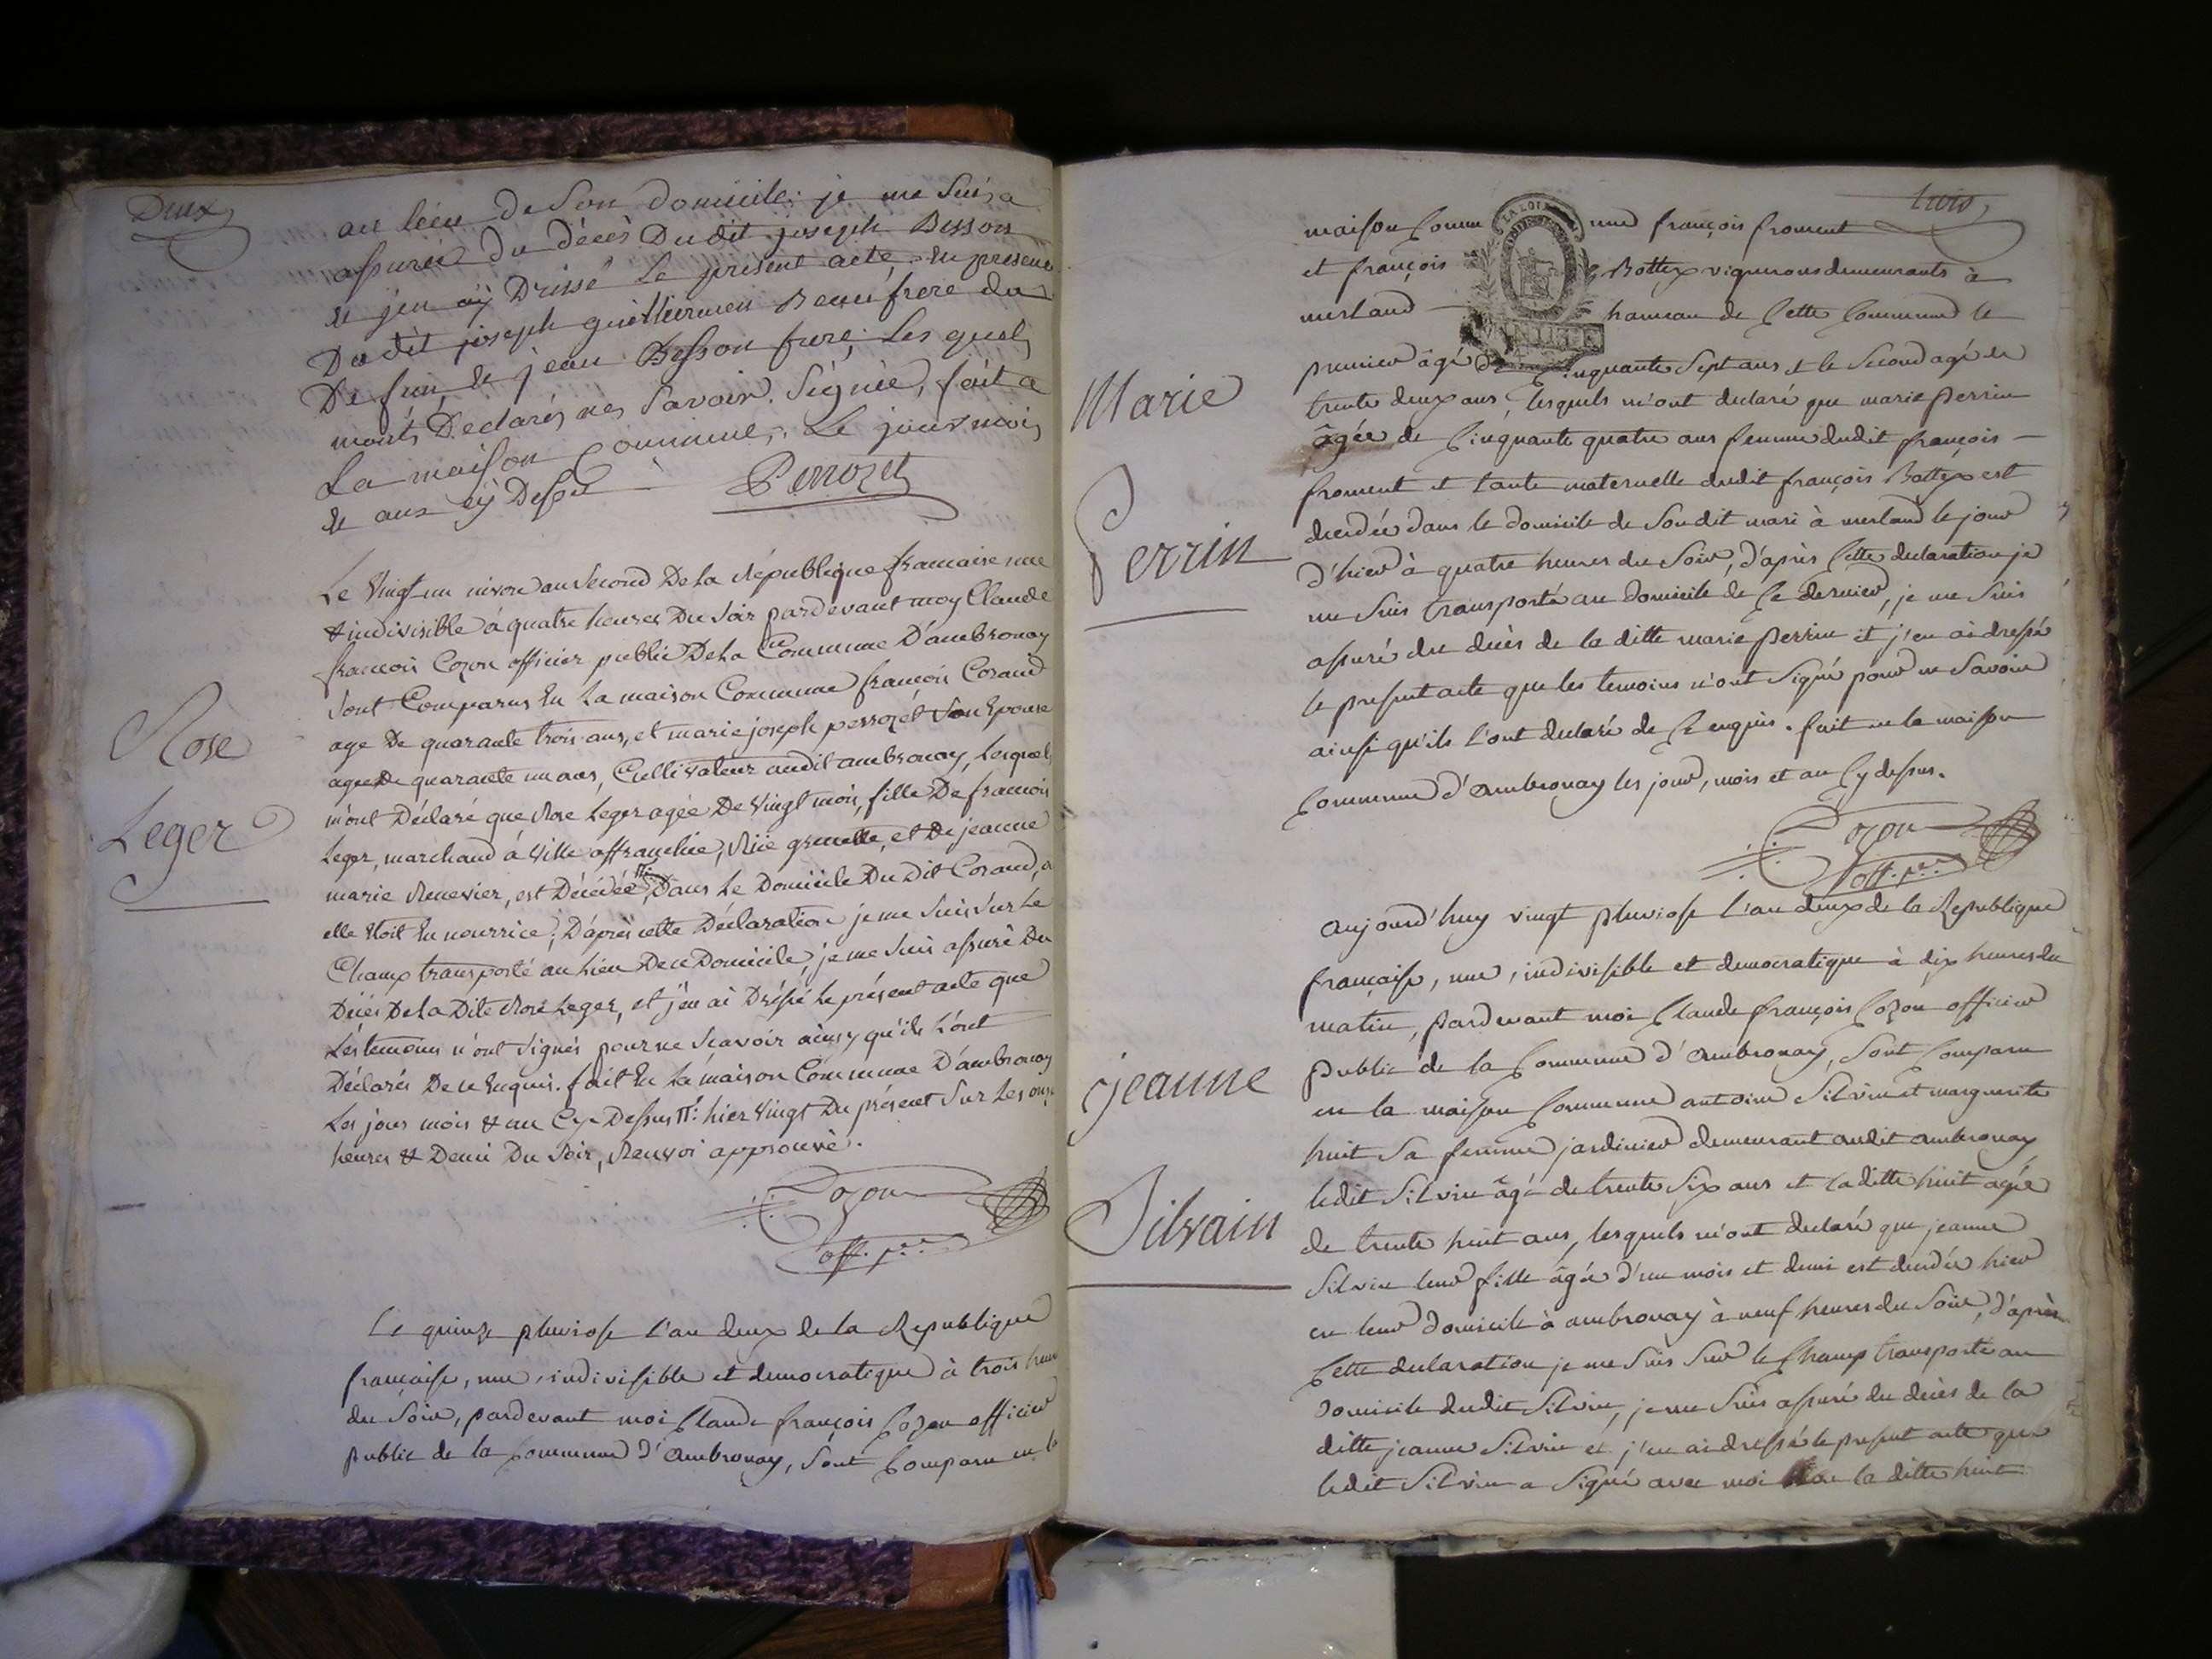 Deux
au lieu de Son domicile. je me Suis a
assurée du décès Dudit joseph Besson
et jen ay Drissé Le present acte, en presence
Du dit joseph guillermen Beaufrere du
De funt, et jean Besson frere, Les quels
monts Declarés nes Savoir Signée, fait a
La maison commune, Le jours mois
et ans cy Desue
Perrozet
Le Vingt un nivose an Second De la République francaise une
& indivisible à quatre heures Du Soir pardevant moy Claude
francois Cozon officier public De la Commune D'ambronay
Sont Comparus En La maison Commune francois Corand
age De quarante trois ans, et marie joseph perrozet Son Epouse
agée De quarante un ans, Cultivateur audit ambronay, Lesquels
m'ont Déclaré que Rose Leger agée De Vingt mois, fille De francois
Leger, marchand à Ville affranchie, Rüe grenette, et De jeanne
marie Renevier, est Décédée, Dans Le Domicile Du Dit Corand, a
elle Etoit En nourrice; D'après cette Déclaration je me Suis Sur Le
Champ transporté au Lieu De ce Domicile, je me Suis assuré Du
Décès De la Dite Rose Leger, et j'en ai Dréssé Le présent acte que
Les temoins n'ont Signés pour ne Scavoir ainsy qu'ils L'ont
Déclarés De ce Enquis. fait En La maison Commune D'ambronay
Les jour mois & an Cy-Dessus hier Vingt Du présent Sur Les onze
heures & Demi Du Soir, Renvoi approuvé.
Rose
Leger
Cozon
off. p.er
Le quinze pluviose l'an deux de la Republique
française, une, indivisible et democratique à trois heures
du Soir, pardevant moi Claude françois Cozon officier
public de la Commune d'Ambronay, Sont Comparu en la
trois
LA LOI
maison Commune françois froment
et françois Bottex vignerons demeurants à
merland hameau de Cette Commune le
premier âgé de Cinquante Sept ans et le Second agé de
trente deux ans, lesquels m'ont declaré que marie perrin
âgée de Cinquante quatre ans femme dudit françois
froment et tante maternelle dudit françois Bottex est
decedée dans le domicile de Son dit mari à merland le jour
d'hier à quatre heures du Soir, d'après Cette declaration je
me Suis transporté au domicile de Ce dernier, je me Suis
assuré du decès de la ditte marie perrin et j'en ai dressé
le present acte que les temoins n'ont Signé pour ne Savoir
ainsi qu'ils l'ont declaré de Ce enquis. fait en la maison
Commune d'Ambronay les jour, mois et an Cy dessus.
Marie
Perrin
Cozon
off. p.er
aujourd'huy vingt pluviose l'an deux de la Republique
française, une, indivisible et democratique à dix heures du
matin, pardevant moi Claude françois Cozon officier
public de la Commune d'Ambronay, Sont Comparu
en la maison Commune antoine Silvin et marguerite
huit Sa femme jardinier demeurant audit ambronay
ledit Silvin âgé de trente Six ans et laditte huit agée
de trente huit ans, lesquels m'ont declaré que jeanne
Silvin leur fille âgée d'un mois et demi est decedée hier
en leur domicile à ambronay à neuf heures du Soir, d'après
Cette declaration je me Suis Sur le Champ transporté au
domicile dudit Silvin, je me Suis assuré du decès de la
ditte jeanne Silvin et j'en ai dressé le present acte que
ledit Silvin a Signé avec moi la ditte huit
jeanne
Silvain